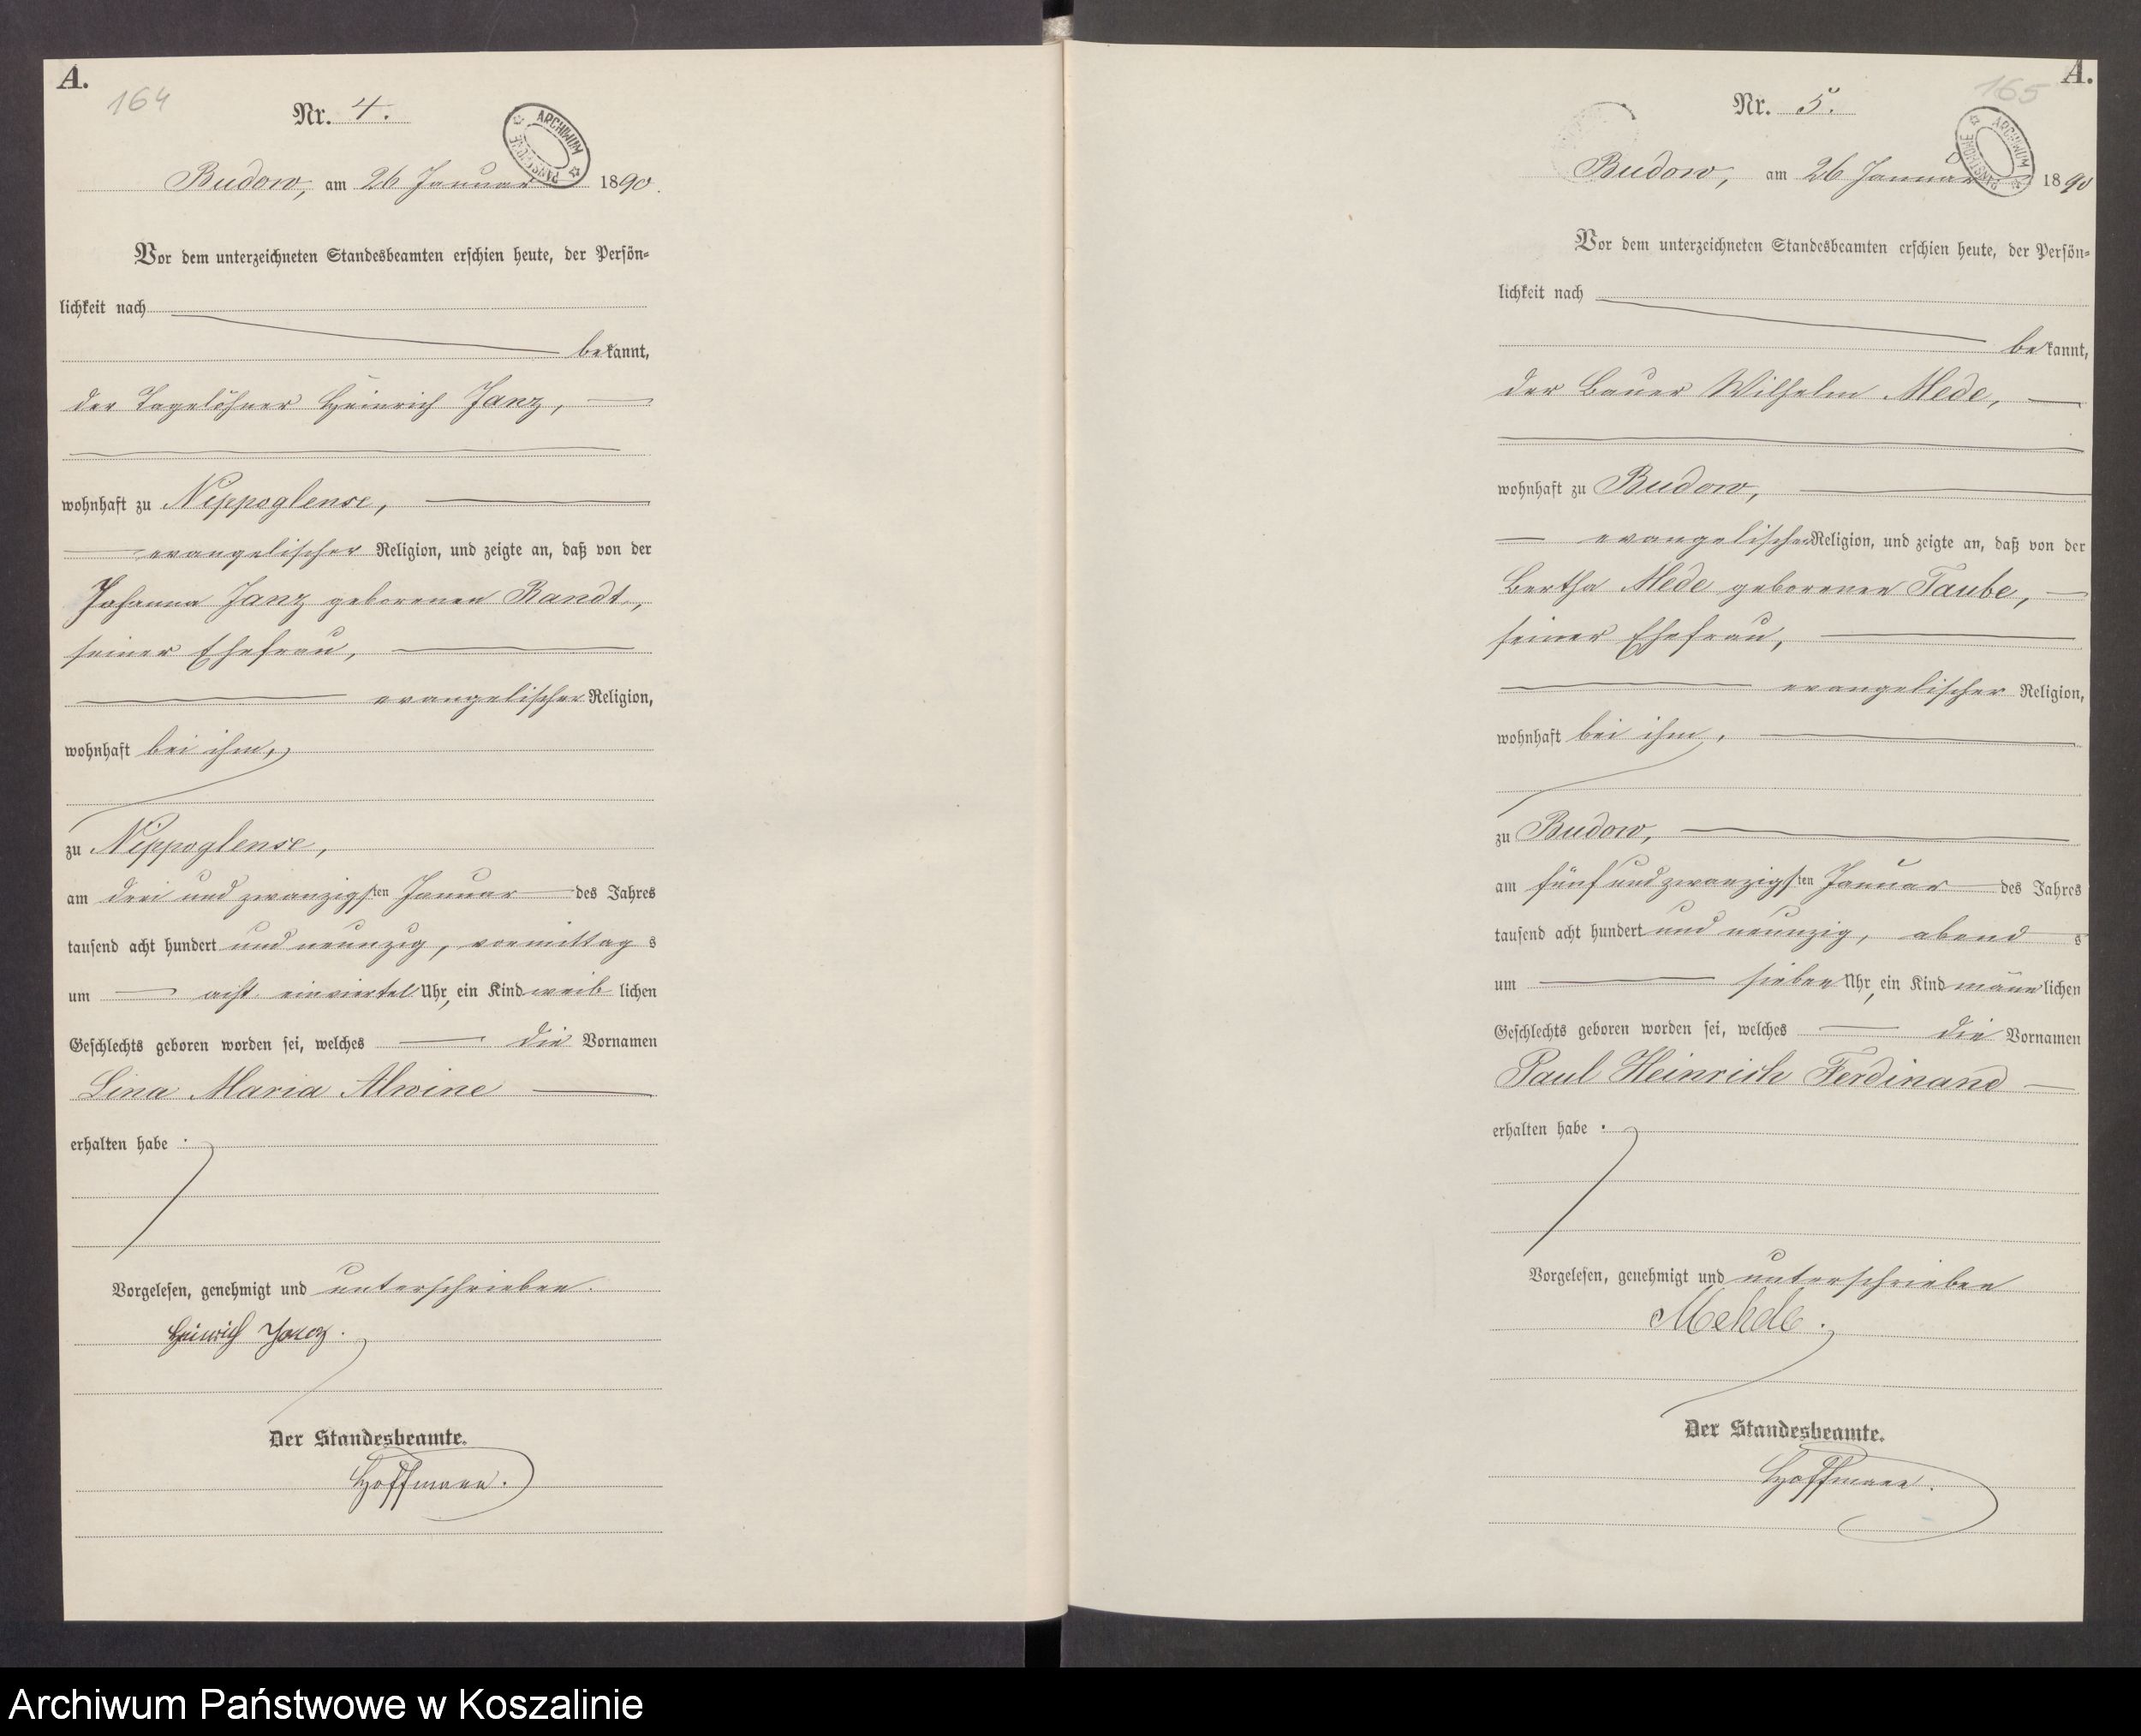 A.
164
Nr. 4.
ARCHIWUM PAŃSTWOWE
Budow, am 26 Januar 1890.
Vor dem unterzeichneten Standesbeamten erschien heute, der Persön=
lichkeit nach
bekannt,
der Tagelöhner Heinrich Janz,
wohnhaft zu Nippoglense,
evangelischer Religion, und zeigte an, daß von der
Johanna Janz geborenen Randt,
seiner Ehefrau,
evangelischer Religion,
wohnhaft bei ihm,
zu Nippoglense,
am drei und zwanzigsten Januar des Jahres
tausend acht hundert und neunzig, vormittags
um acht einviertel Uhr, ein Kind weiblichen
Geschlechts geboren worden sei, welches die Vornamen
Lina Maria Alwine
erhalten habe.
Vorgelesen, genehmigt und unterschrieben.
Heinrich Janz.
Der Standesbeamte.
Hoffmann.
A.
165
Nr. 5.
ARCHIWUM PAŃSTWOWE
Budow, am 26 Januar 1890
Vor dem unterzeichneten Standesbeamten erschien heute, der Persön=
lichkeit nach
bekannt,
der Bauer Wilhelm Mede,
wohnhaft zu Budow,
evangelischer Religion, und zeigte an, daß von der
Bertha Mede geborenen Taube,
seiner Ehefrau,
evangelischer Religion,
wohnhaft bei ihm,
zu Budow,
am fünf und zwanzigsten Januar des Jahres
tausend acht hundert und neunzig, abends
um sieben Uhr, ein Kind mänlichen
Geschlechts geboren worden sei, welches die Vornamen
Paul Heinrich Ferdinand
erhalten habe.
Vorgelesen, genehmigt und unterschrieben
Mehde.
Der Standesbeamte.
Hoffmann.
Archiwum Państwowe w Koszalinie